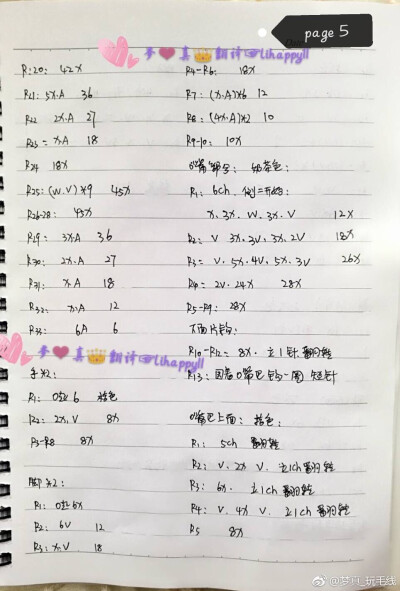 page 5
梦❤真👑翻译@lihappyll
R:20: 42X
R21: 5X.A 36
R22 2X.A 27
R23= X.A 18
R24 18X
R25: (W.V)*9 45X
R26-28: 45X
R29= 3X.A 36
R30: 2X.A 27
R31: X.A 18
R32: X.A 12
R33: 6A 6
梦❤真👑翻译@lihappyll
手X2:
R1: 0起6 棕色
R2: 2X,V 8X
R3-R8 8X
脚X2:
R1: 0起6X
R2: 6V 12
R3: X.V 18
R4-R6: 18X
R7: (X.A)X6 12
R8: (4X.A)X2 10
R9-10: 10X
嘴部分: 奶茶色:
R1: 6ch,倒二开始:
X.3X.W.3X.V 12X
R2= V 3X.3V.3X.2V 18X
R3= V.5X.4V.5X.3V 26X
R4= 2V.24X 28X
R5-R9: 28X
下面片钩:
R10-R12= 8X. 立1针翻转
R13: 围着嘴巴钩一圈短针
嘴巴上面: 棕色:
R1: 5ch 翻转
R2: V.2X V. 立1ch翻转
R3: 6X. 立1ch翻转
R4: V.4X V. 立1ch翻转
R5 8X
@梦真_玩毛线